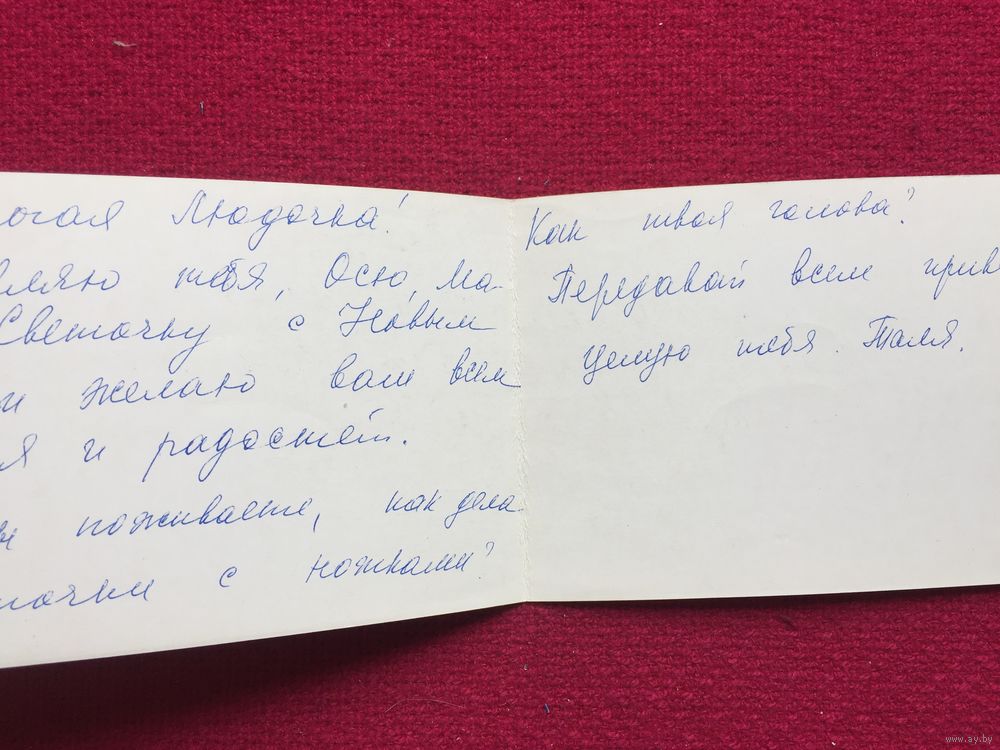 огая Людочка!
вляю тебя, Осю, Ма-
Светочку с Новым
и желаю вам всем
я и радостей.
ы поживаете, как дела
точки с ножками?
Как твоя голова?
Передавай всем прив
Целую тебя. Таля.
www.ay.by